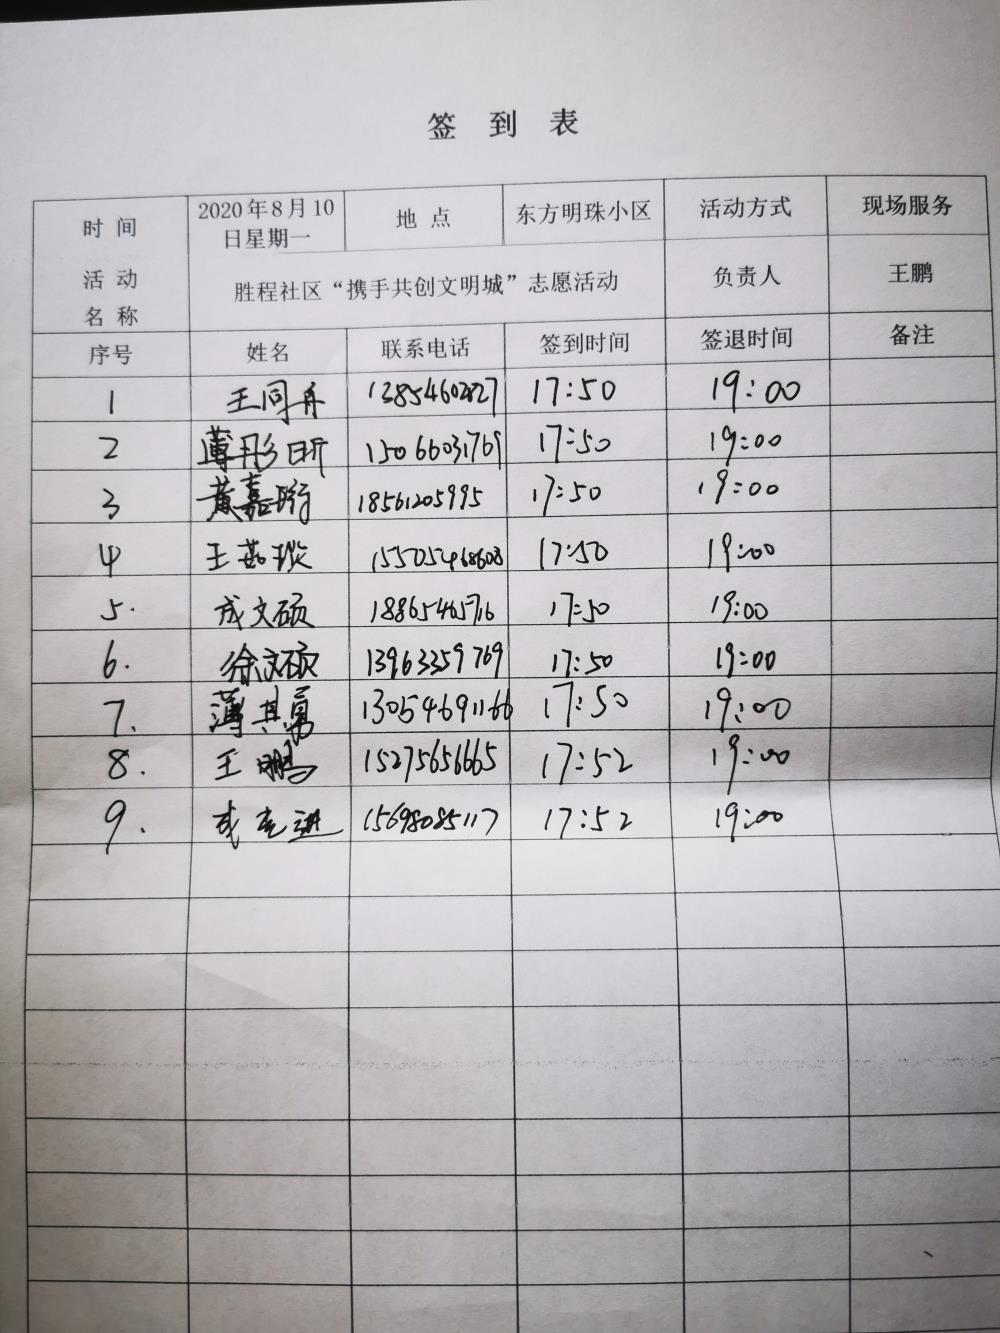 签到表
时间 2020年8月10日星期一 地点 东方明珠小区 活动方式 现场服务
活动名称 胜程社区“携手共创文明城”志愿活动 负责人 王鹏
序号 姓名 联系电话 签到时间 签退时间 备注
1 王同舟 17:50 19:00
2 薄彤昕 15066031769 17:50 19:00
3 黄嘉珩 18561205995 17:50 19:00
4 王茹琰 17:50 19:00
5. 成文硕 18865465716 17:50 19:00
6. 徐文硕 13963359769 17:50 19:00
7. 薄其勇 13054691166 17:50 19:00
8. 王鹏 15275656665 17:52 19:00
9. 成克进 15698085117 17:52 19:00